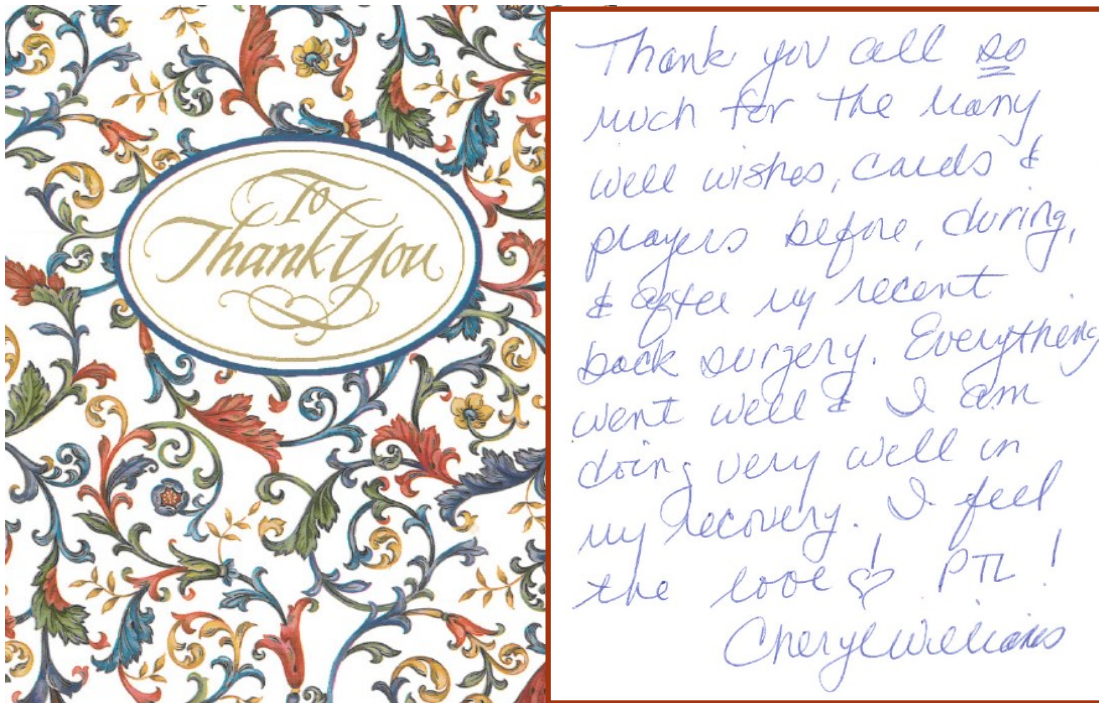 To
Thank You
Thank you all so
much for the many
well wishes, cards &
prayers before, during,
& after my recent
back surgery. Everything
went well & I am
doing very well in
my recovery. I feel
the love ♡! PTL!
Cheryl Williams